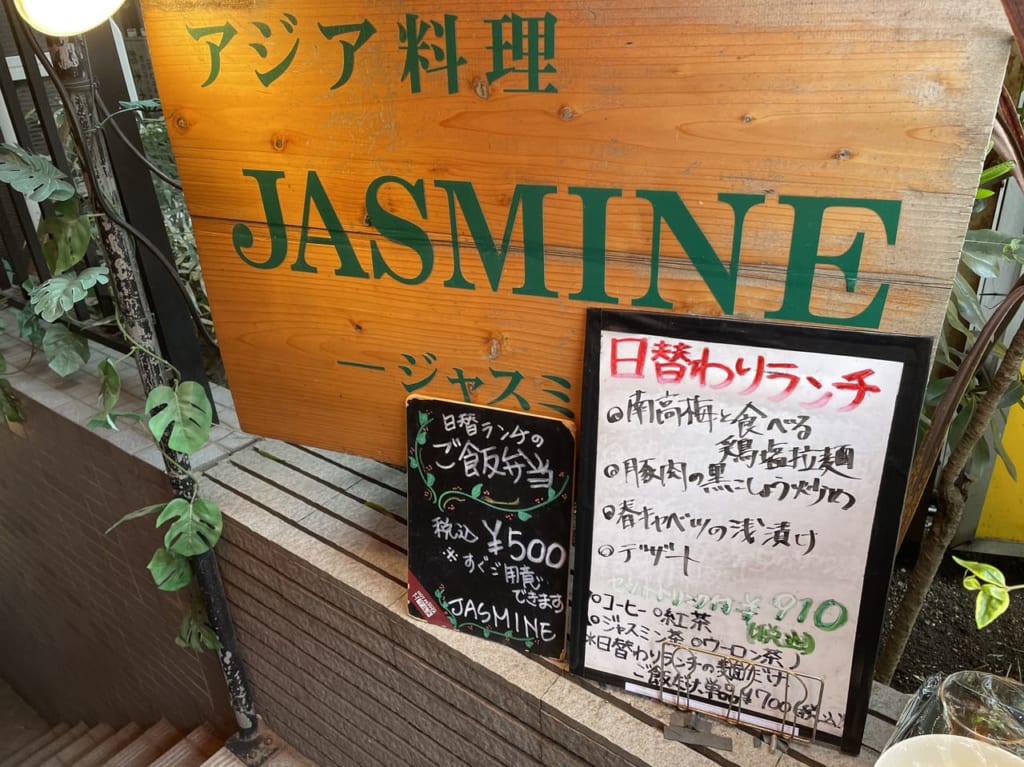 アジア料理
JASMINE
ージャスミ
日替ランチの
ご飯弁当
税込 ¥500
※すぐご用意
できます
JASMINE
日替わりランチ
◎南高梅と食べる
鶏塩拉麺
◎豚肉の黒こしょう炒め
◎春キャベツの浅漬け
◎デザート
セットドリンク付 ¥910
(税込)
◎コーヒー ◎紅茶
◎ジャスミン茶 ◎ウーロン茶)
※日替わりランチの麺だけ
ご飯だけ単品¥700(税込)